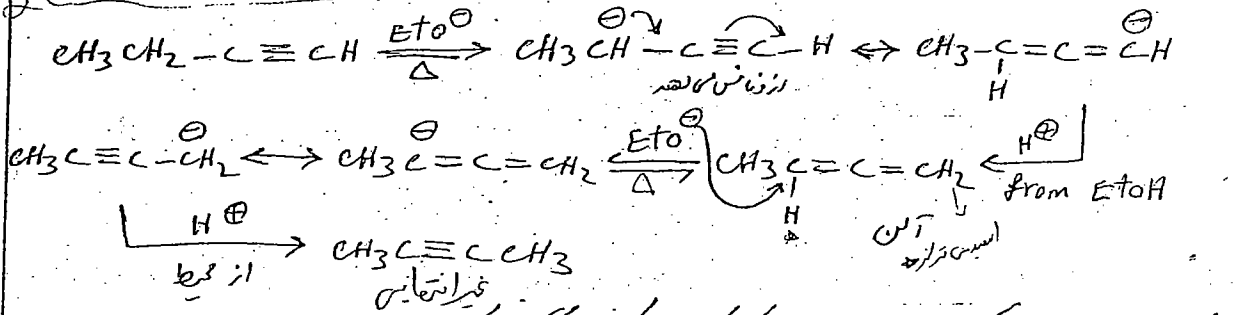 CH3CH2-C≡CH —EtO⊖/Δ→ CH3CH⊖-C≡C-H ↔ CH3-C(H)=C=CH⊖
رزونانس می‌دهد
CH3C≡C-CH2⊖ ↔ CH3C⊖=C=CH2 ←EtO⊖/Δ— CH3C(H)=C=CH2 ←H⊕ from EtOH
آلن
CH3C≡C-CH2⊖ —H⊕/از محیط→ CH3C≡CCH3
غیر انتهایی